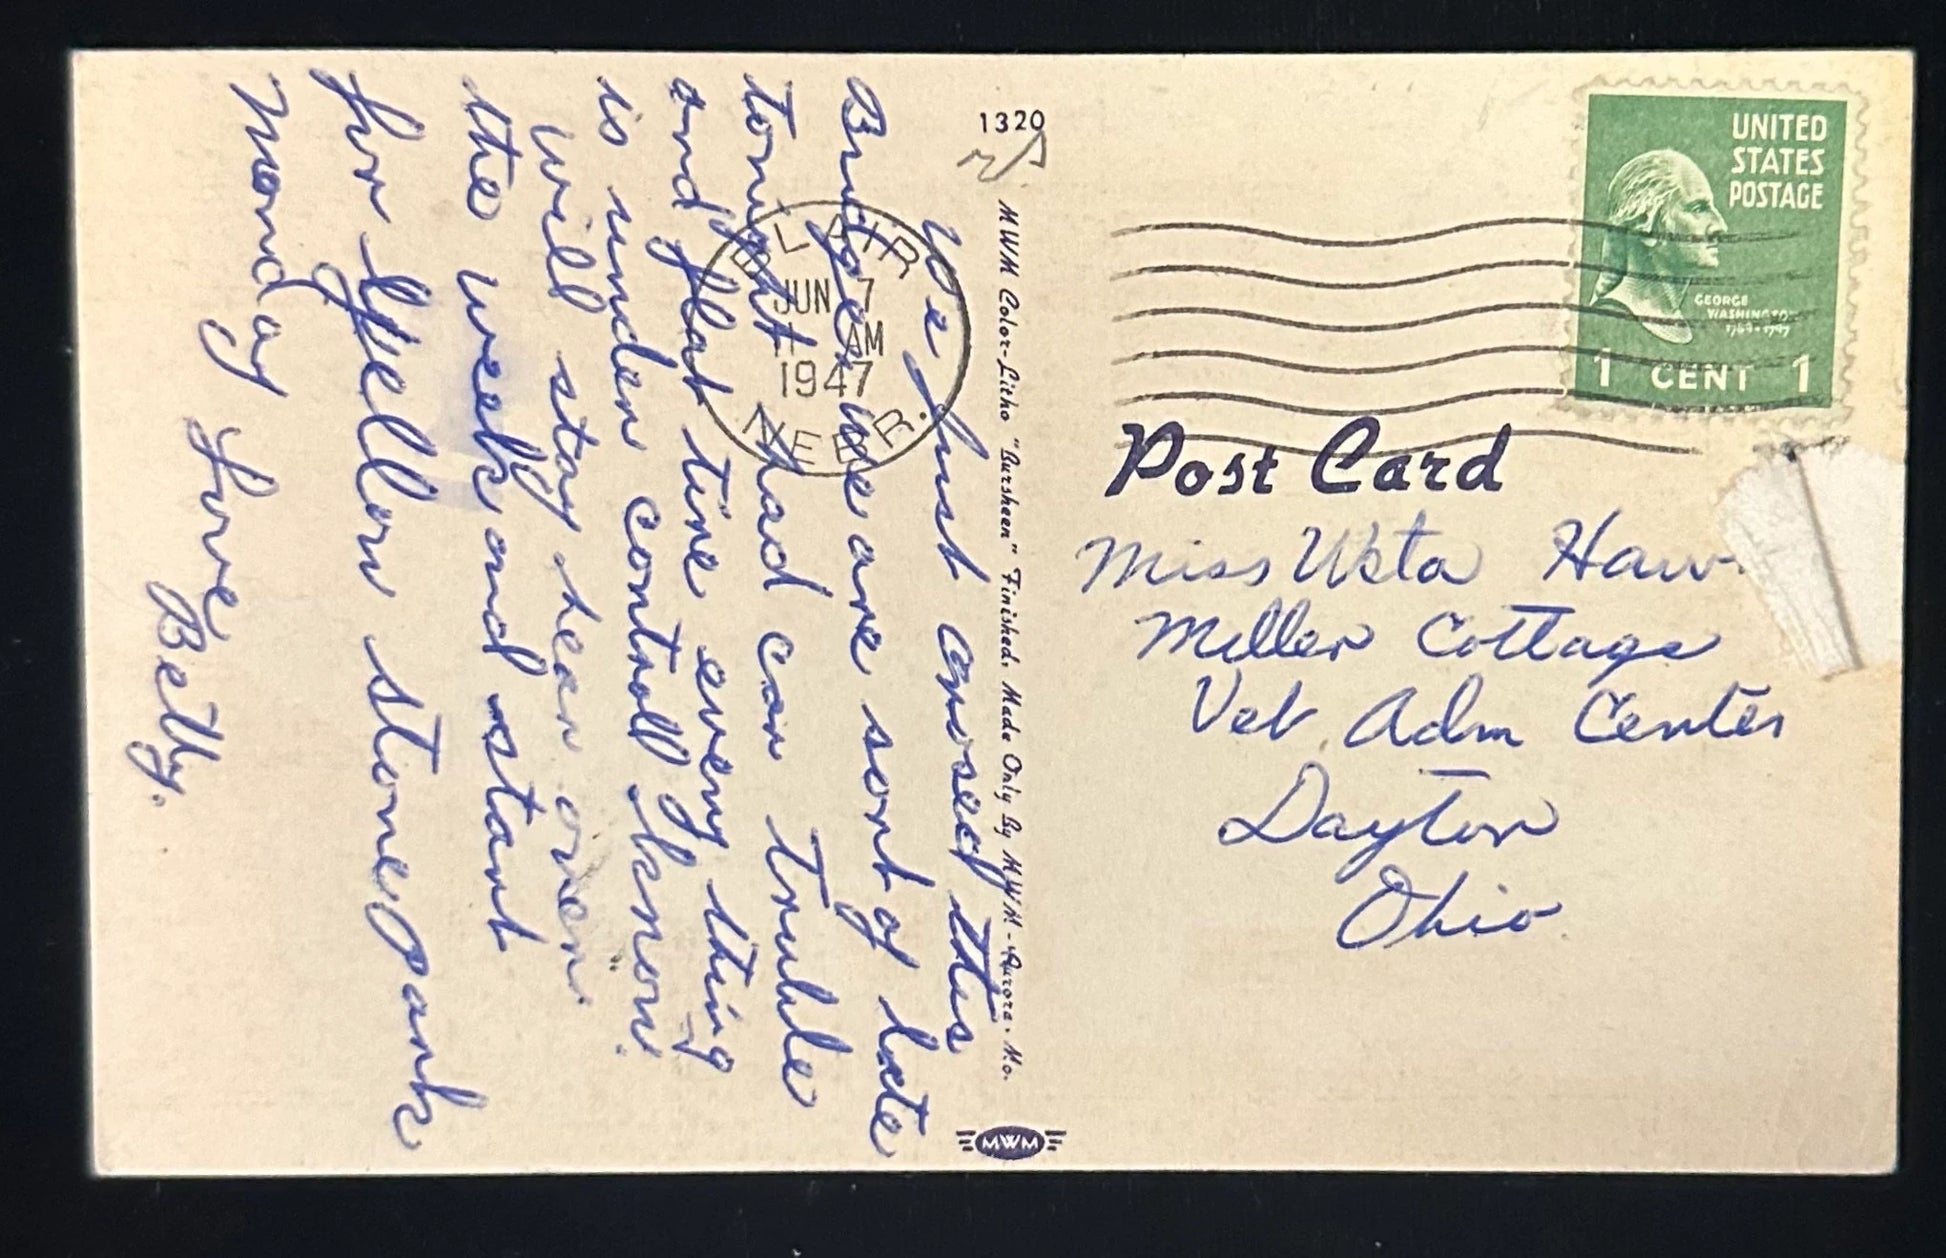 We just crosed this
Bridge we are sort of late
tonight Had car truble
and flat tire every thing
is under controll know.
will stay hear over
the week and start
for Yellow stone park
Monday
Love
Betty.
BLAIR
JUN 7
AM
1947
NEBR.
1320
MWM Color-Litho "Bursheen" Finished. Made Only By MWM - Aurora, Mo.
MWM
UNITED
STATES
POSTAGE
GEORGE
WASHINGTON
1789-1797
1 CENT 1
Post Card
Miss
Miller Cottage
Vet Adm Center
Dayton
Ohio